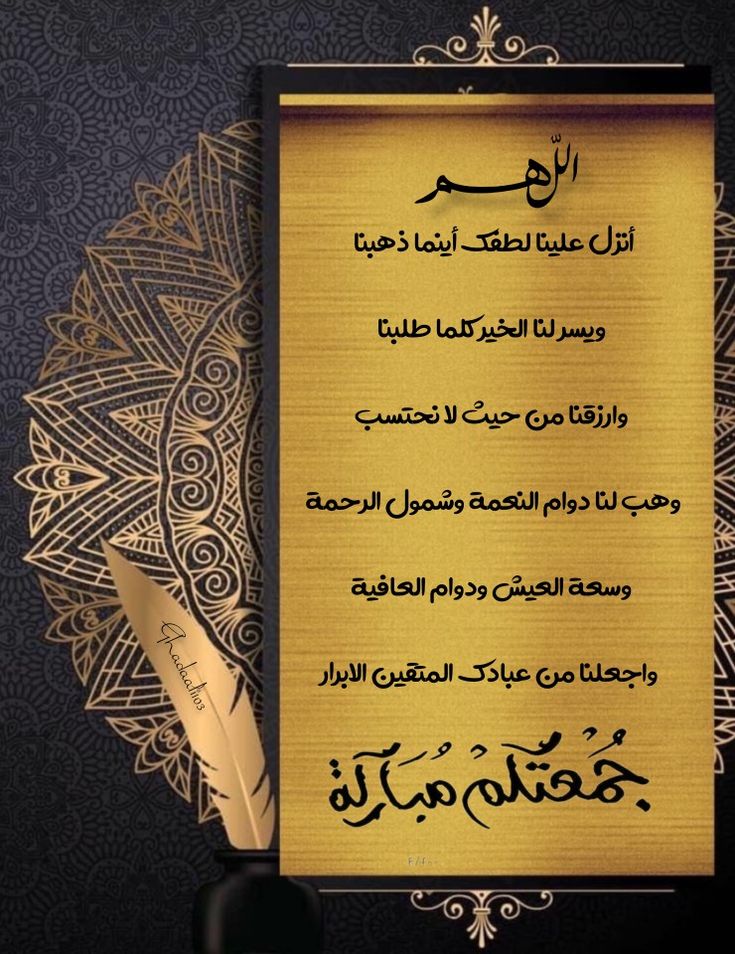 اللّهم
أنزل علينا لطفك أينما ذهبنا
ويسر لنا الخير كلما طلبنا
وارزقنا من حيث لا نحتسب
وهب لنا دوام النعمة وشمول الرحمة
وسعة العيش ودوام العافية
واجعلنا من عبادك المتقين الابرار
جُمُعَتُكُمْ مُبَارَكَة
Ghadaali1103